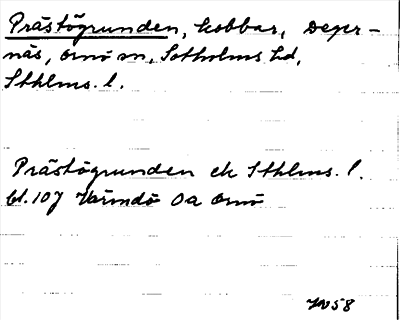 Prästögrunden, kobbar, Deger-
näs, Ornö sn, Sotholms hd,
Sthlms. l.
Prästögrunden ek Sthlms. l.
bl. 107 Värmdö Oa Ornö
58